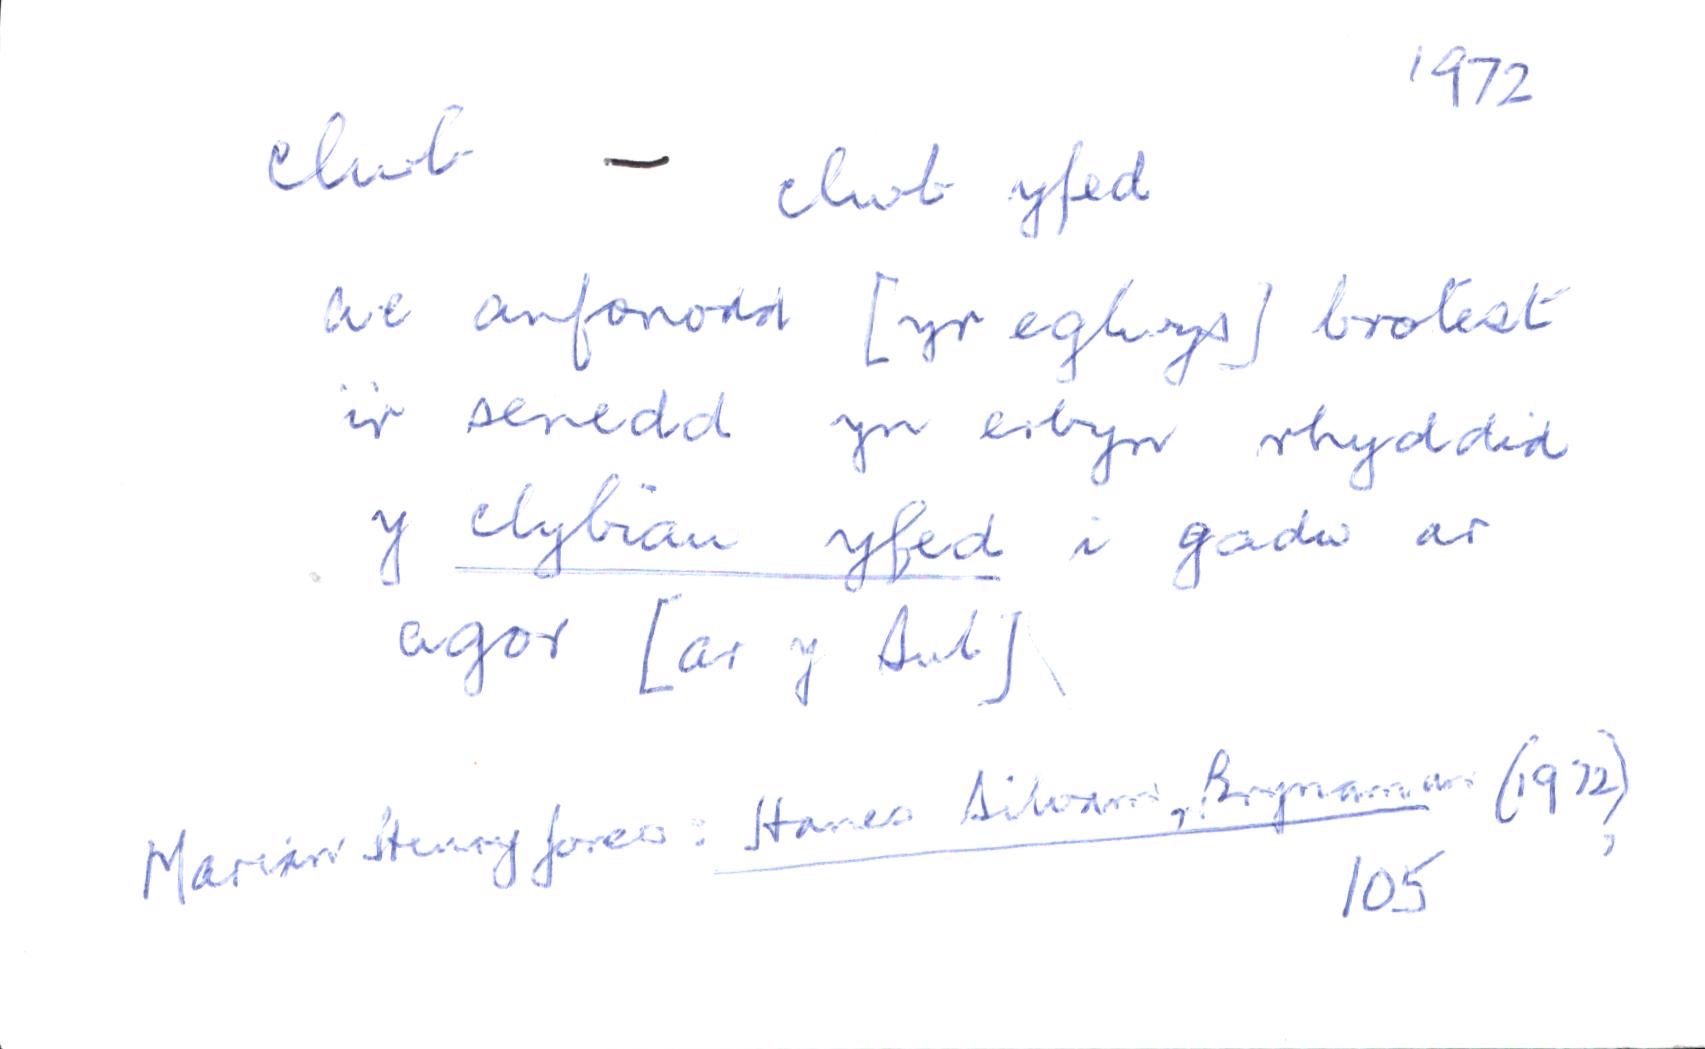 1972
clwb – clwb yfed
ac anfonodd [yr eglwys] brotest
i'r senedd yn erbyn rhyddid
y clybiau yfed i gadw ar
agor [ar y Sul]
Marian Henry Jones: Hanes Siloam, Brynaman (1972),
105